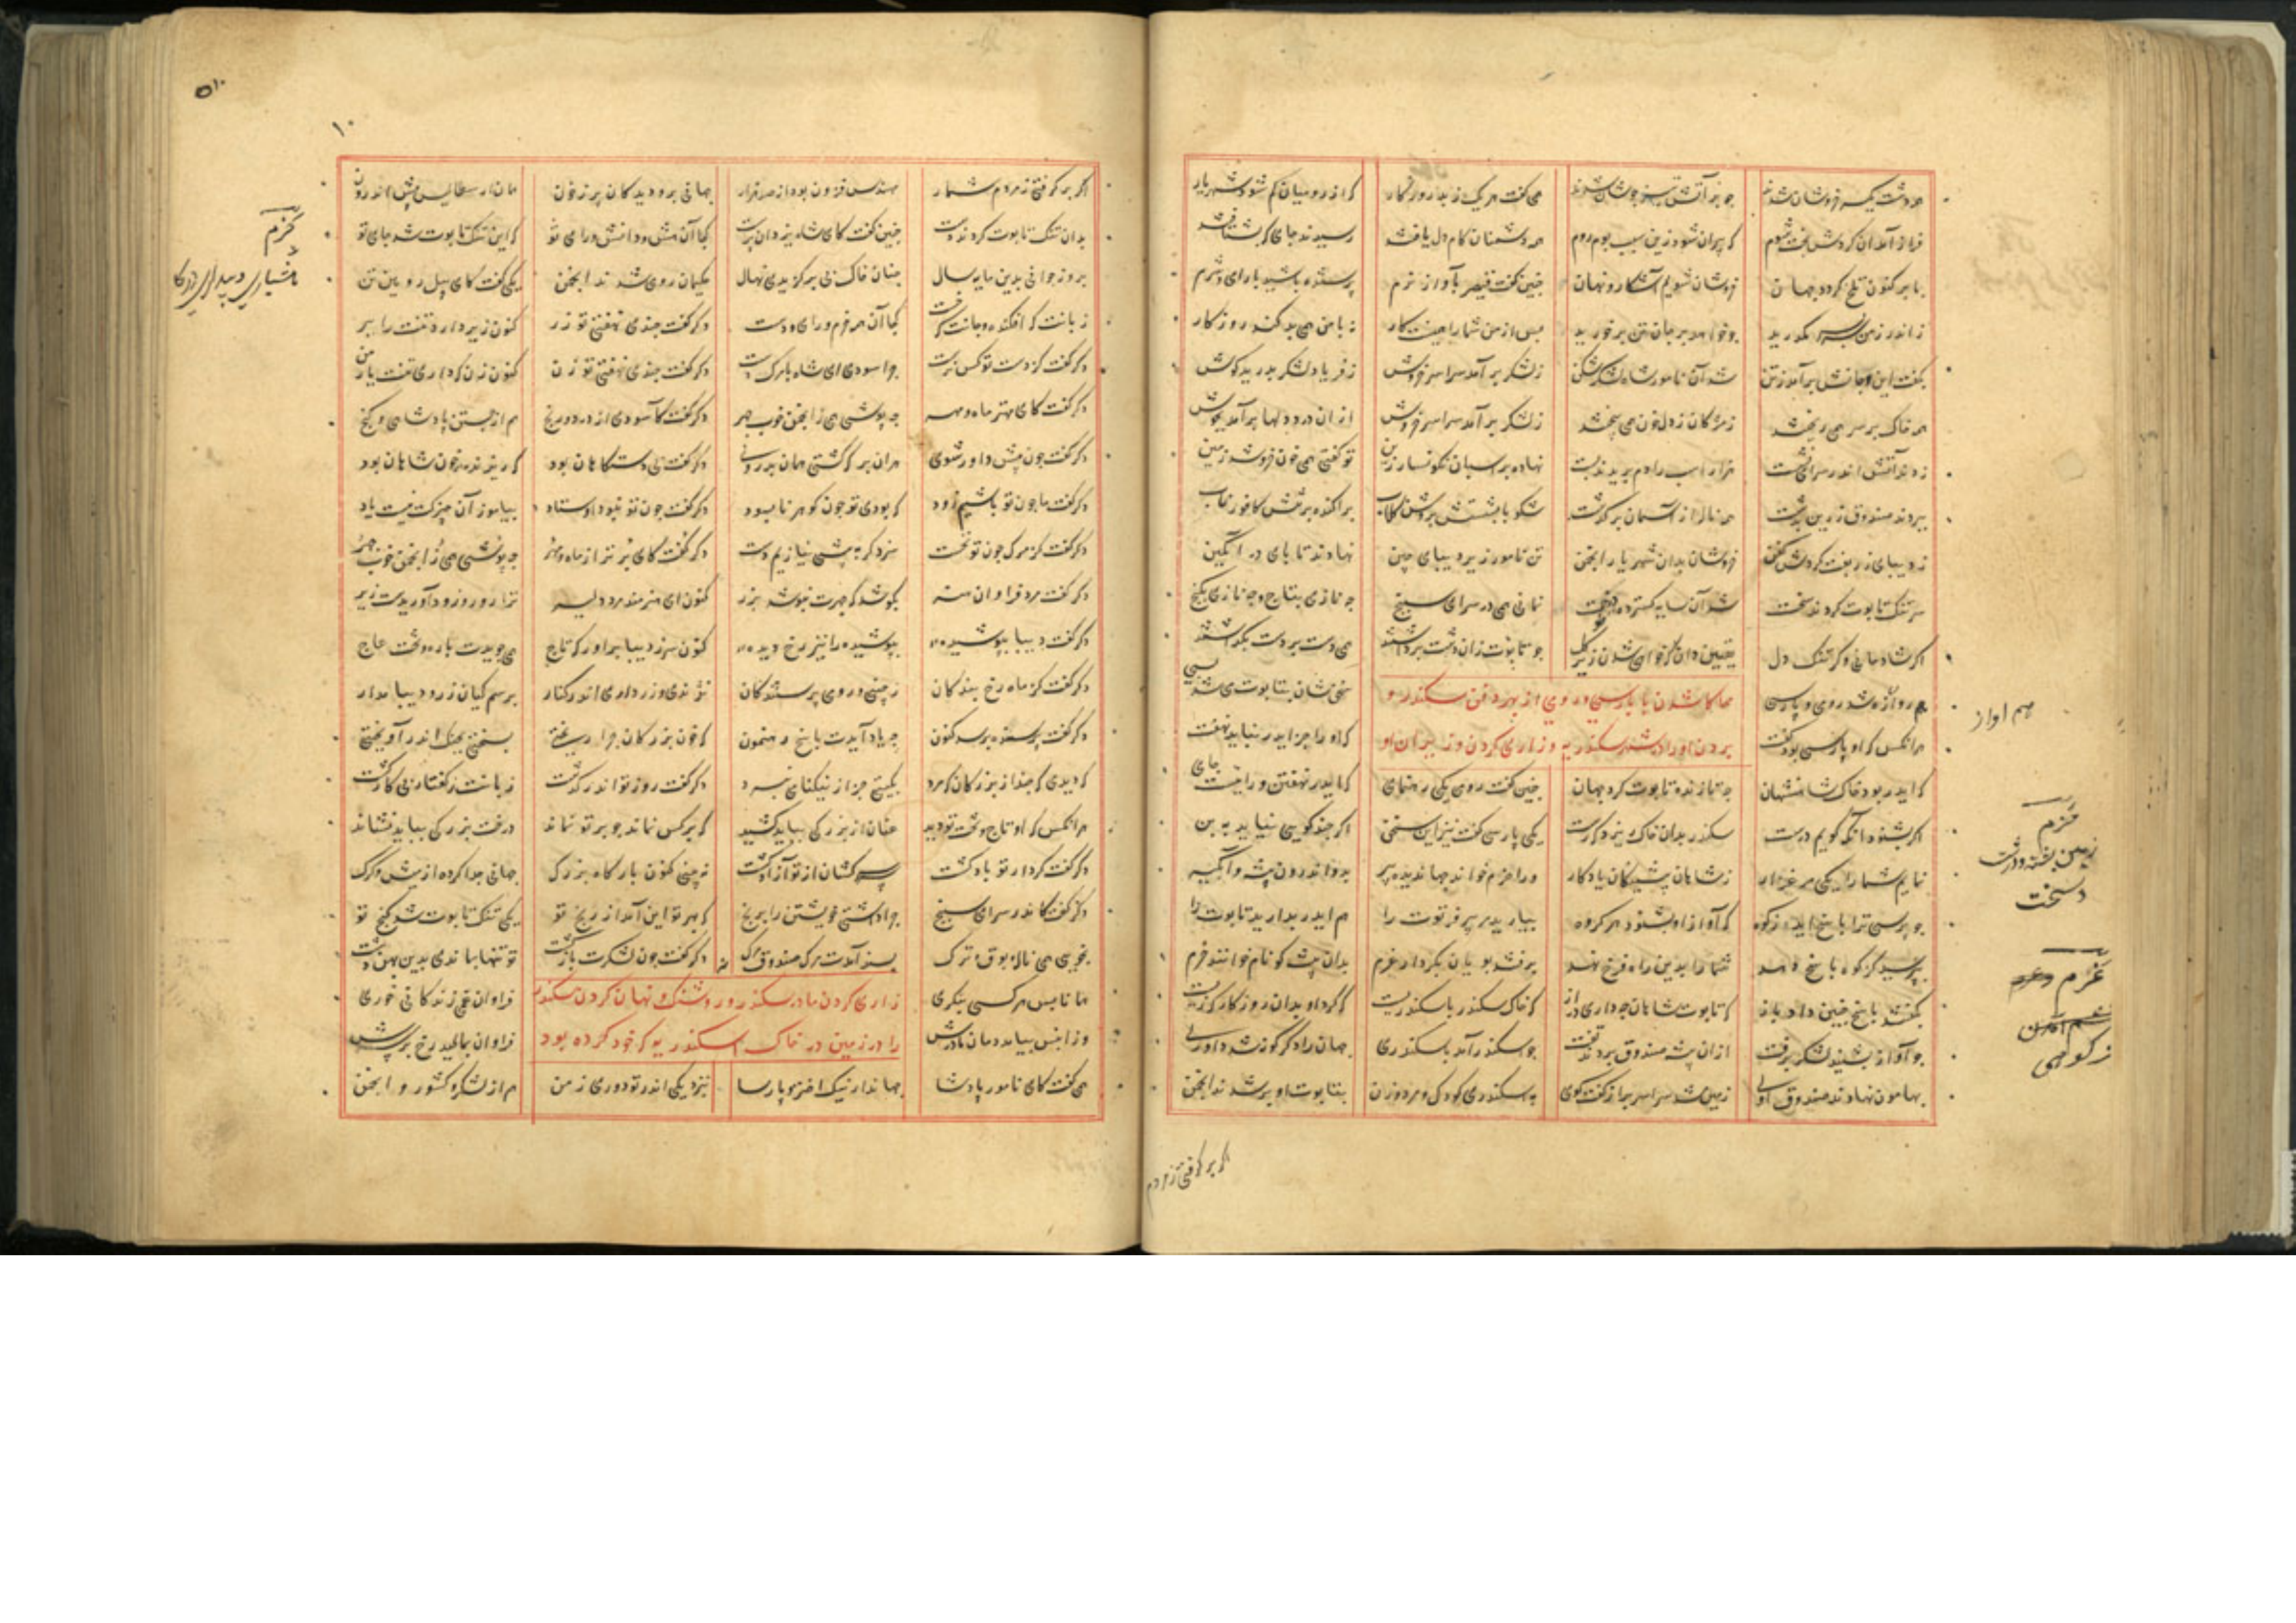 همه دشت یکسر خروشان شدند چو بر آتش تیز جوشان شدند همی گفت هر یک ز بد روزگار که از رومیان کم شود شهریار
فراز آمد آن گردش بخت شوم که ویران شود زین سپس بوم روم همه دشمنان کام دل یافتند رسیدند جای که بشتافتند
بما بر کنون تلخ گردد جهان خروشان شویم آشکار و نهان چنین گفت قیصر بآواز نرم پرسنده باشید با رای و شرم
ز اندرز من سربسر مگذرید چو خواهید بر جان و تن برخورید پس از من شما را همینست کار نه با من همی بد کند روزگار
بگفت این و جانش برآمد ز تن شد آن نامور شاه لشکرشکن ز لشکر برآمد سراسر خروش ز فریاد لشکر بدرید گوش
همه خاک بر سر همی ریختند ز مژگان ز دل خون همی بیختند ز لشکر برآمد سراسر خروش از آن درد دلها برآمد بجوش
زدند آتش اندر سرای نشست هزار اسب را دم بریدند پست نهاده بر اسبان نگونسار زین تو گفتی همی خون خروشد زمین
ببردند صندوق زرین بدشت همی ناله از آسمان برگذشت سکوبا بشستش بروشن گلاب پراکنده بر تنش کافور ناب
ز دیبای زربفت کردش کفن خروشان بدان شهریار انجمن تن نامور زیر دیبای چین نهادند تا پای در انگبین
سر تنگ تابوت کردند سخت شد آن سایه گستر درخت نمانی همی در سرای سپنج چه نازی بتاج و چه نازی بگنج
اگر شادمانی و گر تنگ دل یقین دان که خواهی شدن زیر گل چو تابوت زان دشت برداشتند همی دست بر دست بگذاشتند
هم آواز شد رومی و پارسی سخنشان بتابوت می شد بسی
محاکا شدن با پارسی و رومی از بهر دفن سکندر و
هر آنکس که او پارسی بود گفت که او را جز ایدر نباید نهفت
بردن او را در شهر سکندریه و زاری کردن وزیران او
که ایدر بود خاک شاهنشهان چه تازند تابوت گرد جهان چنین گفت رومی یکی رهنمای که ایدر نهفتن ورا نیست جای
اگر بشنوید آنکه گویم درست سکندر بدان خاک ریزد کرست یکی پارسی گفت نیز این سخن اگر چند گویی نیاید به بن
نمایم شما را یکی مرغزار ز شاهان پیشینگان یادگار ورا خرم خواند جهاندیده پیر بدو اندرون بیشه و آبگیر
چو پرسی ترا پاسخ آید ز کوه که آواز او بشنود هر گروه بیارید مر پیر فرتوت را هم ایدر بدارید تابوت را
بپرسید گر کوه پاسخ دهد شما را بدین راه فرخ نهد برفتند پویان بکردار غرم بدان بیشه کو نام خوانند خرم
بگفتند پاسخ چنین داد باز که تابوت شاهان چه دارید راز که خاک سکندر باسکندریست کجا کرد او بدان روزگار کزیست
چو آواز بشنید لشکر برفت از آن بیشه صندوق بردند تفت چو اسکندر آمد باسکندری جهان را دگر گونه شد داوری
بهامون نهادند صندوق اوی زمین شد سراسر پر از گفتگوی به اسکندری کودک و مرد و زن بتابوت او بر شدند انجمن
هم اواز
خرم
غرم
ز کوهی
اگر برگرفتی ز مردم
۱۰
اگر برگرفتی ز مردم شمار مهندس فزون بود از صد هزار جهانی برو دیدگان پر ز خون همان ارسطالیس پیش اندرون
بدان تنگ تابوت کردند دست چنین گفت کای شاه یزدان پرست کجا آن هش و دانش و رای تو که این تنگ تابوت شد جای تو
بروز جوانی بدین مایه سال چنان خاک نی برگزیدی نهال حکیمان رومی شدند انجمن یکی گفت کای پیل رویین تن
ز پایت که افکند و جانت که خست کجا آن همه حزم و رای و دست دگر گفت چندی نهفتی تو زر کنون زیر دارد تنت را ببر
دگر گفت کز دست تو کس نرست چرا سودی ای شاه با مرگ دست دگر گفت چندی نهفتی تو زن
دگر گفت کای مهتر ماه و مهر چه پوشی همی ز انجمن خوب چهر دگر گفت کاسودی از درد و رنج هم از جستن پادشاهی و گنج
دگر گفت چون پیش داور شوی همان بر که گشتی همان بدروی دگر گفت بی دستگاه آن بود که ریزنده خون شاهان بود
دگر گفت ما چون تو باشیم زود که بودی تو چون گوهر نابسود دگر گفت چون تو نبود اوستاد بیاموز آن چیز کت نیست یاد
دگر گفت کز مرگ چون تو نخست سزد گر به پیشی نیازیم دست دگر گفت کای برتر از ماه و مهر چه پوشی همی ز انجمن خوب چهر
دگر گفت مرد فراوان هنر بکوشد که چهرت نپوشد بزر کنون ای هنرمند مرد دلیر ترا زر و روز زود آوریدست زیر
دگر گفت دیبا بپوشیده‌ای بپوشیده را نیز رخ دیده‌ای کنون سر ز دیبا برآور که تاج همی جویدت یاره و تخت عاج
دگر گفت کز ماه رخ بندگان ز چینی و رومی پرستندگان تو بندی و زر داری اندر کنار برسم کیان زر و دیبا مدار
دگر گفت پرسنده پرسد کنون چه یاد آیدت پاسخ رهنمون که خون بزرگان چرا ریختی بسختی بگنج اندر آویختی
که دیدی که چند از بزرگان که مرد بگیتی جز از نیکنامی نبرد دگر گفت روز تو اندر گذشت زبانت ز گفتار بی‌کار گشت
هر آنکس که او تاج و تخت تو دید عنان از بزرگی بباید کشید که بر کس نماند چو بر تو نماند درخت بزرگی بباید نشاند
دگر گفت کردار تو باد گشت سر گشان از تو آزاد گشت نبینی کنون بارگاه بزرگ جهانی جدا کرده از میش و گرگ
دگر گفت کاندر سرای سپنج چرا داشتی خویشتن را برنج که بهر تو این آمد از رنج تو یکی تنگ تابوت شد گنج تو
نجویی همی ناله بوق و ترک پسند آمدت مرگ صندوق مرگ دگر گفت چون لشکرت بازگشت تو تنها بماندی بدین پهن دشت
همانا پس هر کسی بنگری فراوان غم زندگانی خوری
زاری کردن مادر سکندر و روشنک و نهان کردن سکندر
وز آن پس بیامد دمان مادرش فراوان بمالید رخ بر برش
را در زمین در خاک اسکندریه که خود کرده بود
همی گفت کای نامور پادشا جهاندار نیک اختر و پارسا بنزدیکی اندر تو دوری ز من هم از لشکر و کشور و انجمن